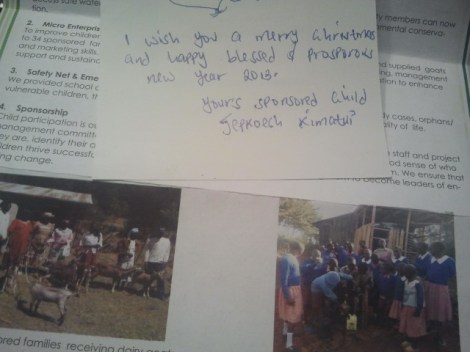 I wish you a merry Christmas
and happy blessed & prosporous
new year 2013.
Yours sponsored child
Jepkoech Kimatui
tion.
2. Micro Enterpris
To improve childre
to 34 sponsored fa
and marketing skills.
support and sustaina
3. Safety Net & Eme
We provided school
vulnerable children, th
4. Sponsorship
Child participation is
management committ
they are, identify their
ldren thrive successfu
ng change.
y members can now
mental conserva-
supplied goats
ing, management
tion to enhance
dy cases, orphans/
ality of life.
staff and project
od sense of wha
m. We ensure that
to become leaders of en-
ored families receiving dairy